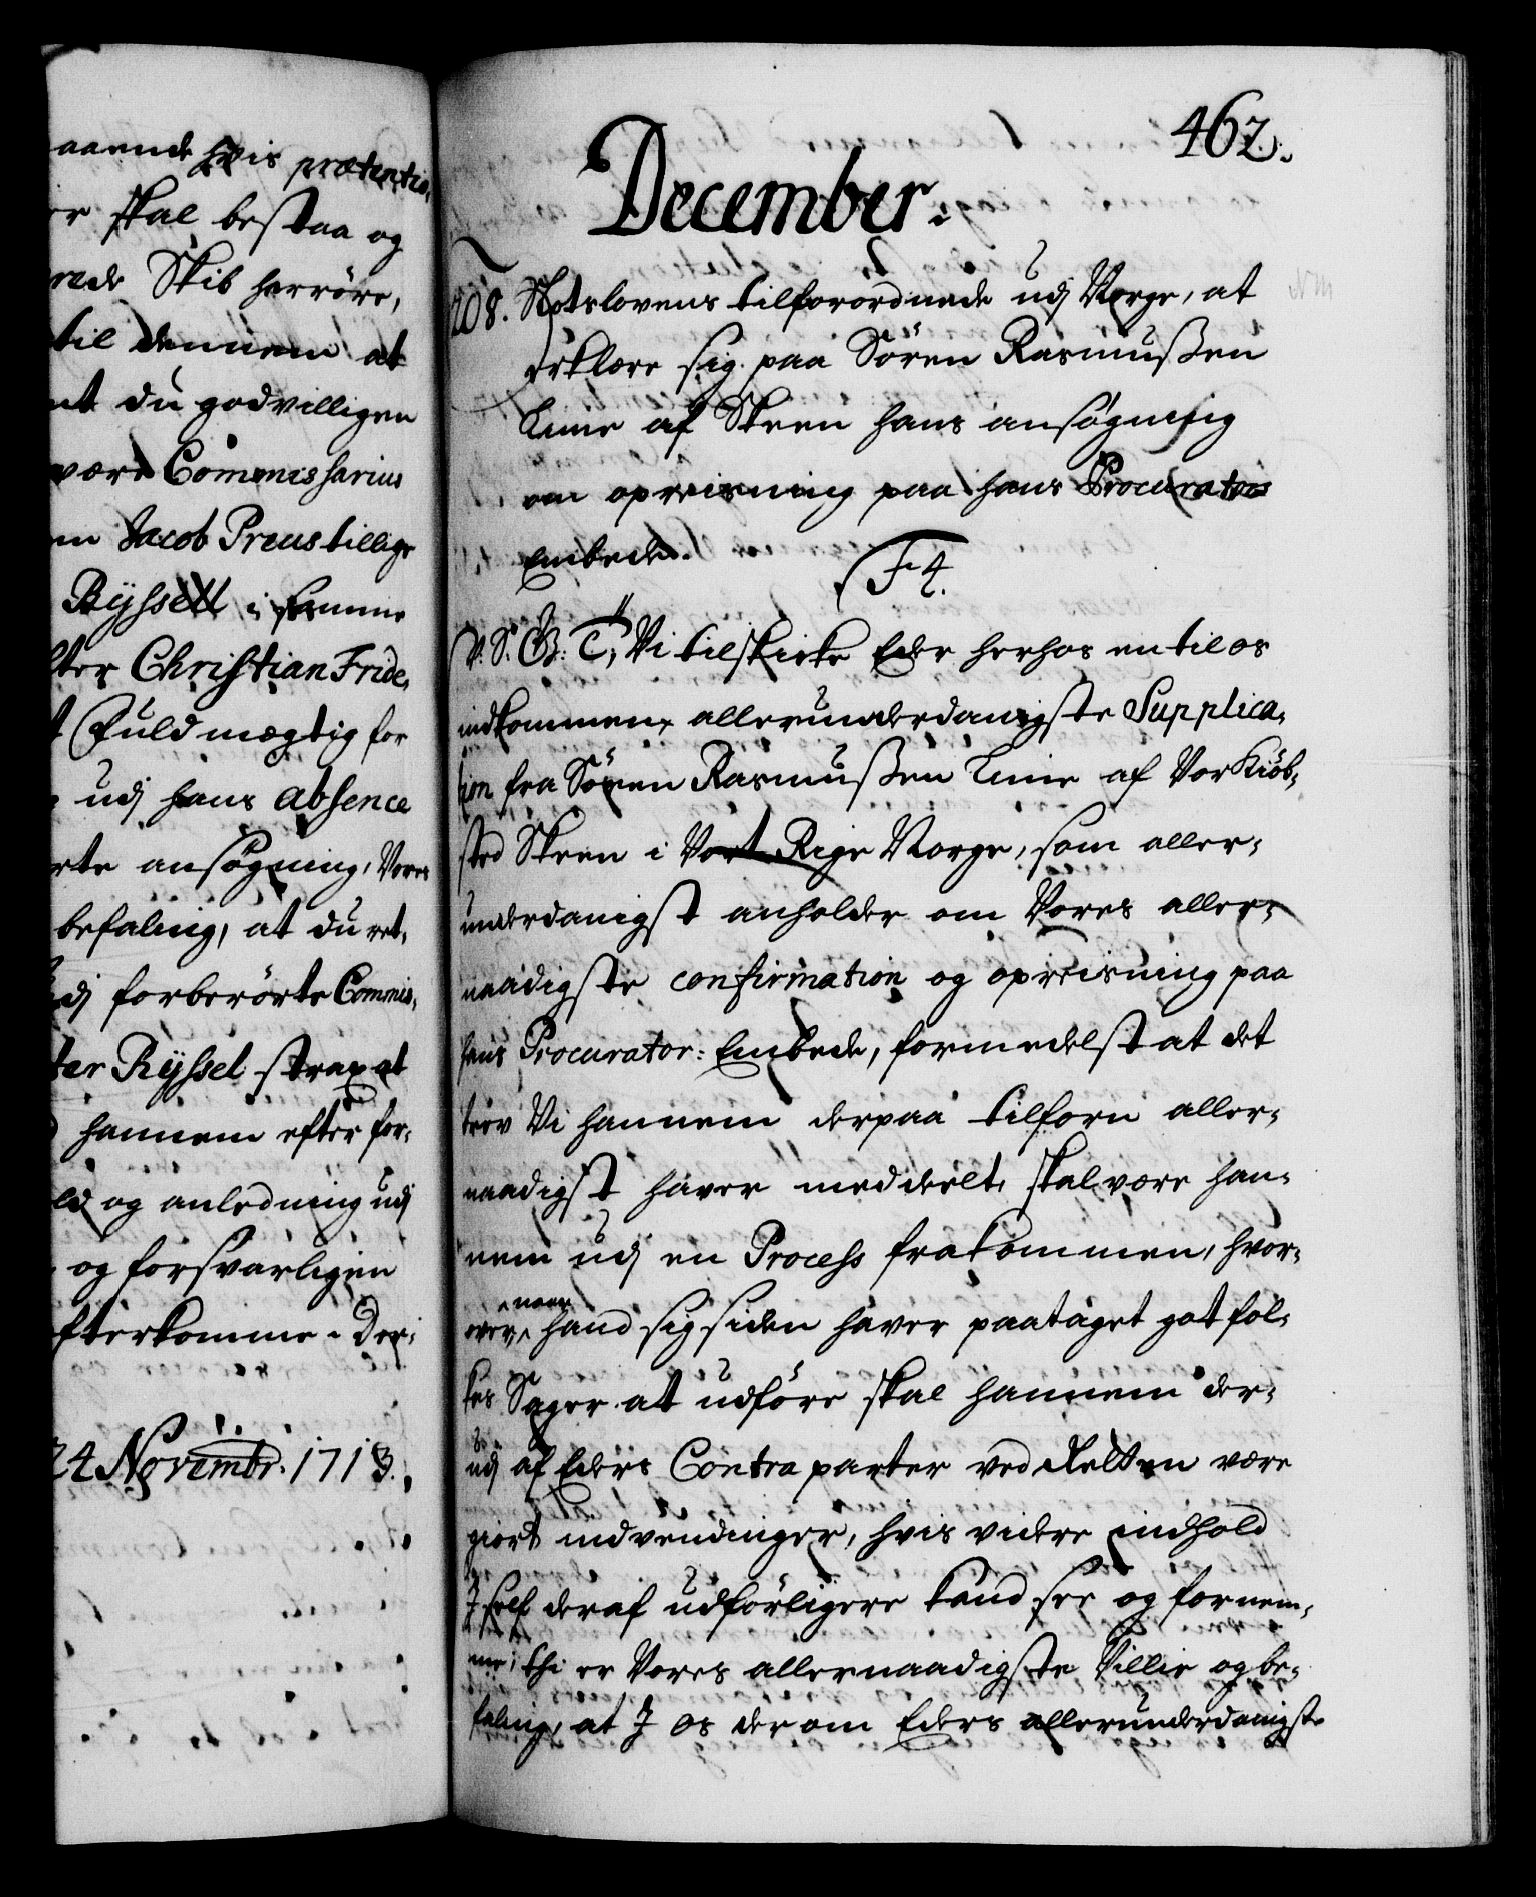 aaende hvis prætentio,
er skal bestaa og
rede Skib herröre,
til dennem at
nt du godvilligen
være Commissarius
en Jacob Preus tillige
Rÿssell i samme
ter Christian Fride,
t Fuldmægtig for
udj hans absence
rte ansøgning, Vores
befaling, at du ret,
dj forberörte Commis,
ter Rÿssel strax at
hannem efter for,
ld og anledning udj
og forsvarligen
fterkomme. Der,
24 Novembr. 1713.
462.
December.
208. Slotslovens tilforordnede udj Norge, at
erklære sig paa Sören Rasmußen
Lime af Skeen hans ansøgning
om opreisning paa hans Procurators
Embede.
F4.
V. S. G. B: T, Vi tilskicke Eder herhos en til os
indkommen allerunderdanigste Supplica,
tion fra Sören Rasmußen Lime af Vor Kiöb,
sted Skeen i Vort Rige Norge, som aller,
underdanigst anholder om Vores aller,
naadigste confirmation og opreisning paa
hans Procurator: Embede, formedelst at det
brev Vi hannem derpaa tilforn aller,
naadigst haver meddeelt, skal være han,
nem udj en Process frakommen, hvor,
over naar hand sig siden haver paataget got fol,
kes Sager at udföre skal hannem der,
udj af Eders Contraparter ved Retten være
giort indvendinger, hvis videre indhold
I self deraf udförligere kand see og fornem,
me; thi er Vores allernaadigste Villie og be,
faling, at I os derom Eders allerunderdanigste